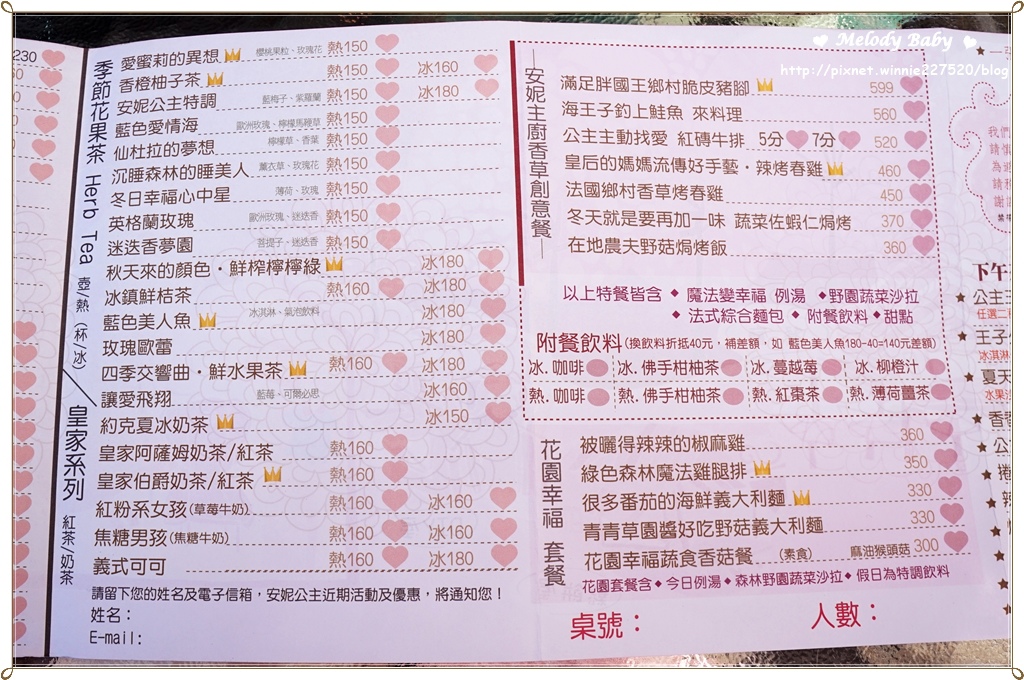 Melody Baby
http://pixnet.winnie227520/blog
230
季節花果茶 Herb Tea 壺/熱 (杯/冰)
愛蜜莉的異想 櫻桃果粒、玫瑰花 熱150
香橙柚子茶 熱150 冰160
安妮公主特調 藍梅子、紫羅蘭 熱150 冰180
藍色愛情海 歐洲玫瑰、檸檬馬鞭草 熱150
仙杜拉的夢想 檸檬草、香葉 熱150
沉睡森林的睡美人 薰衣草、玫瑰花 熱150
冬日幸福心中星 薄荷、玫瑰 熱150
英格蘭玫瑰 歐洲玫瑰、迷迭香 熱150
迷迭香夢園 菩提子、迷迭香 熱150
秋天來的顏色・鮮榨檸檬綠 冰180
冰鎮鮮桔茶 熱160 冰180
藍色美人魚 冰淇淋、氣泡飲料 冰180
玫瑰歐蕾 冰180
四季交響曲・鮮水果茶 熱160 冰180
讓愛飛翔 藍莓、可爾必思 冰160
約克夏冰奶茶 冰150
皇家系列 紅茶/奶茶
皇家阿薩姆奶茶/紅茶 熱160
皇家伯爵奶茶/紅茶 熱160
紅粉系女孩(草莓牛奶) 熱160 冰160
焦糖男孩(焦糖牛奶) 熱160 冰160
義式可可 熱160 冰180
請留下您的姓名及電子信箱，安妮公主近期活動及優惠，將通知您！
姓名：
E-mail:
安妮主廚香草創意餐
滿足胖國王鄉村脆皮豬腳 599
海王子釣上鮭魚 來料理 560
公主主動找愛 紅磚牛排 5分 7分 520
皇后的媽媽流傳好手藝・辣烤春雞 460
法國鄉村香草烤春雞 450
冬天就是要再加一味 蔬菜佐蝦仁焗烤 370
在地農夫野菇焗烤飯 360
以上特餐皆含 ◆ 魔法變幸福 例湯 ◆野園蔬菜沙拉
◆ 法式綜合麵包 ◆ 附餐飲料◆甜點
附餐飲料(換飲料折抵40元，補差額，如 藍色美人魚180-40=140元差額)
冰.咖啡 冰.佛手柑柚茶 冰.蔓越莓 冰.柳橙汁
熱.咖啡 熱.佛手柑柚茶 熱.紅棗茶 熱.薄荷薑茶
花園幸福 套餐
被曬得辣辣的椒麻雞 360
綠色森林魔法雞腿排 350
很多番茄的海鮮義大利麵 330
青青草園醬好吃野菇義大利麵 330
花園幸福蔬食香菇餐 (素食) 麻油猴頭菇 300
花園套餐含◆今日例湯◆森林野園蔬菜沙拉◆假日為特調飲料
桌號： 人數：
下午
公主
任選二
王子
冰淇淋
夏天